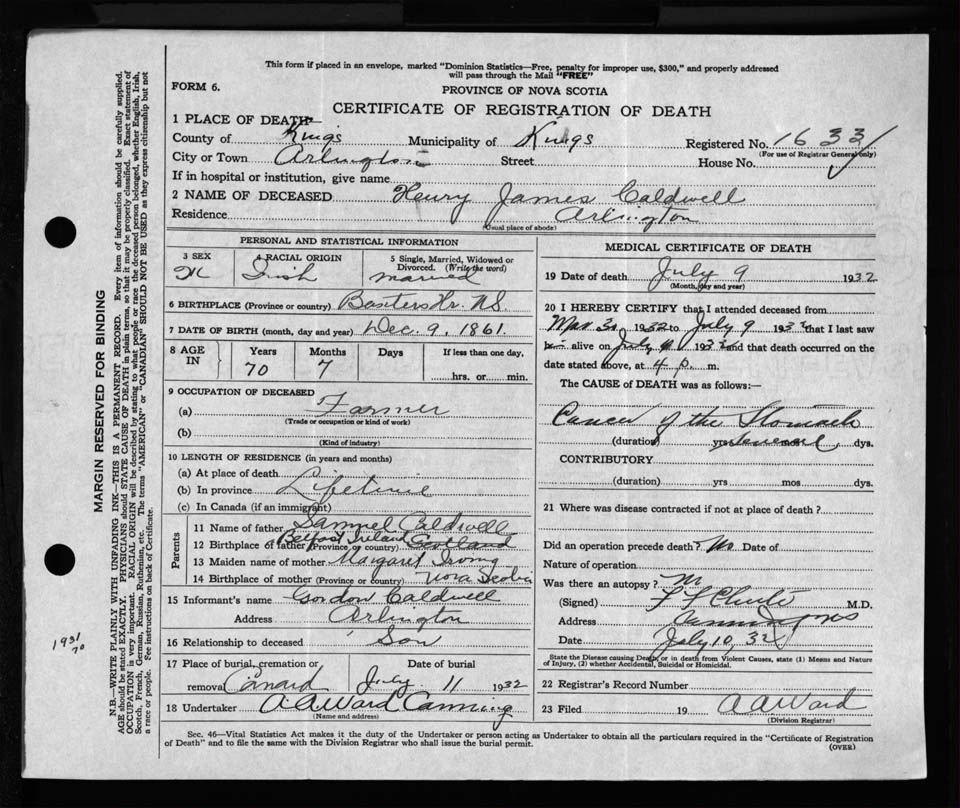 This form if placed in an envelope, marked "Dominion Statistics—Free, penalty for improper use, $300," and properly addressed
will pass through the Mail "FREE"
FORM 6.
PROVINCE OF NOVA SCOTIA
CERTIFICATE OF REGISTRATION OF DEATH
1 PLACE OF DEATH—
County of Kings Municipality of Kings Registered No. 1633
(For use of Registrar General only)
City or Town Arlington Street House No.
If in hospital or institution, give name
2 NAME OF DECEASED Henry James Caldwell
Residence Arlington
(Usual place of abode)
PERSONAL AND STATISTICAL INFORMATION
3 SEX M
4 RACIAL ORIGIN Irish
5 Single, Married, Widowed or Divorced. (Write the word) married
6 BIRTHPLACE (Province or country) Baxters Hr. N.S.
7 DATE OF BIRTH (month, day and year) Dec. 9, 1861.
8 AGE IN Years Months Days If less than one day,
70 7 hrs. or min.
9 OCCUPATION OF DECEASED
(a) Farmer
(Trade or occupation or kind of work)
(b)
(Kind of industry)
10 LENGTH OF RESIDENCE (in years and months)
(a) At place of death
(b) In province Lifetime
(c) In Canada (if an immigrant)
Parents
11 Name of father Samuel Caldwell
12 Birthplace of father (Province or country) Belfast Ireland Scotland
13 Maiden name of mother Margaret
14 Birthplace of mother (Province or country) Nova Scotia
15 Informant's name Gordon Caldwell
Address Arlington
16 Relationship to deceased Son
17 Place of burial, cremation or Date of burial
removal Canard July 11 1932
18 Undertaker A A Ward Canning
(Name and address)
MEDICAL CERTIFICATE OF DEATH
19 Date of death July 9 1932
(Month, day and year)
20 I HEREBY CERTIFY that I attended deceased from
Mar 1932 to July 9 193 that I last saw
alive on July 193 and that death occurred on the
date stated above, at 4 p. m.
The CAUSE of DEATH was as follows:—
Cancer of the Stomach
(duration) yrs. dys.
CONTRIBUTORY
(duration) yrs mos dys.
21 Where was disease contracted if not at place of death?
Did an operation precede death? No Date of
Nature of operation
Was there an autopsy? No
(Signed) M.D.
Address
Date July 10, 32
State the Disease causing Death, or in death from Violent Causes, state (1) Means and Nature
of Injury, (2) whether Accidental, Suicidal or Homicidal.
22 Registrar's Record Number
23 Filed 19 A A Ward
(Division Registrar)
Sec. 46—Vital Statistics Act makes it the duty of the Undertaker or person acting as Undertaker to obtain all the particulars required in the "Certificate of Registration
of Death" and to file the same with the Division Registrar who shall issue the burial permit.
(OVER)
MARGIN RESERVED FOR BINDING
N.B.—WRITE PLAINLY WITH UNFADING INK—THIS IS A PERMANENT RECORD. Every item of information should be carefully supplied.
AGE should be stated EXACTLY. PHYSICIANS should STATE CAUSE OF DEATH in plain terms, so that it may be properly classified. Exact statement of
OCCUPATION is very important. RACIAL ORIGIN will be described by stating to what people or race the deceased person belonged, whether English, Irish,
Scotch, French, German, Russian, Ruthenian, etc. The terms "AMERICAN" or "CANADIAN" SHOULD NOT BE USED as they express citizenship but not
a race or people. Fee instructions on back of Certificate.
1931
70